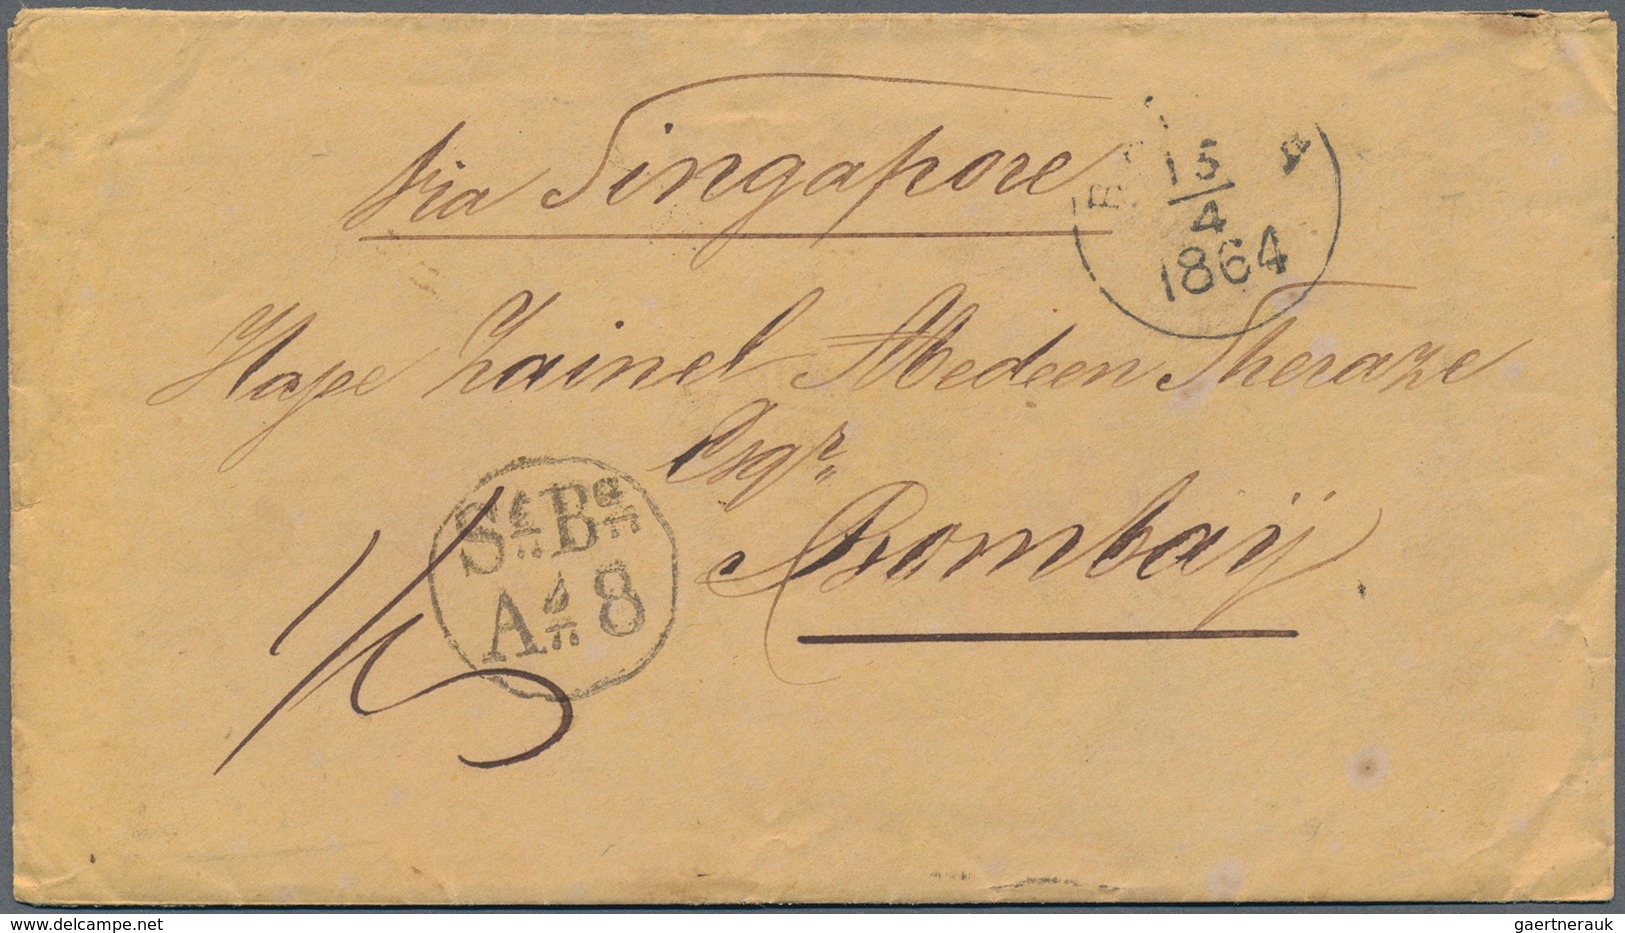 via Singapore
15
4
1864
Hape Zainel Abedeen Sheraze
Esqr
Bombay
St. Bg.
A. 8
delcampe.net
gaertnerauk